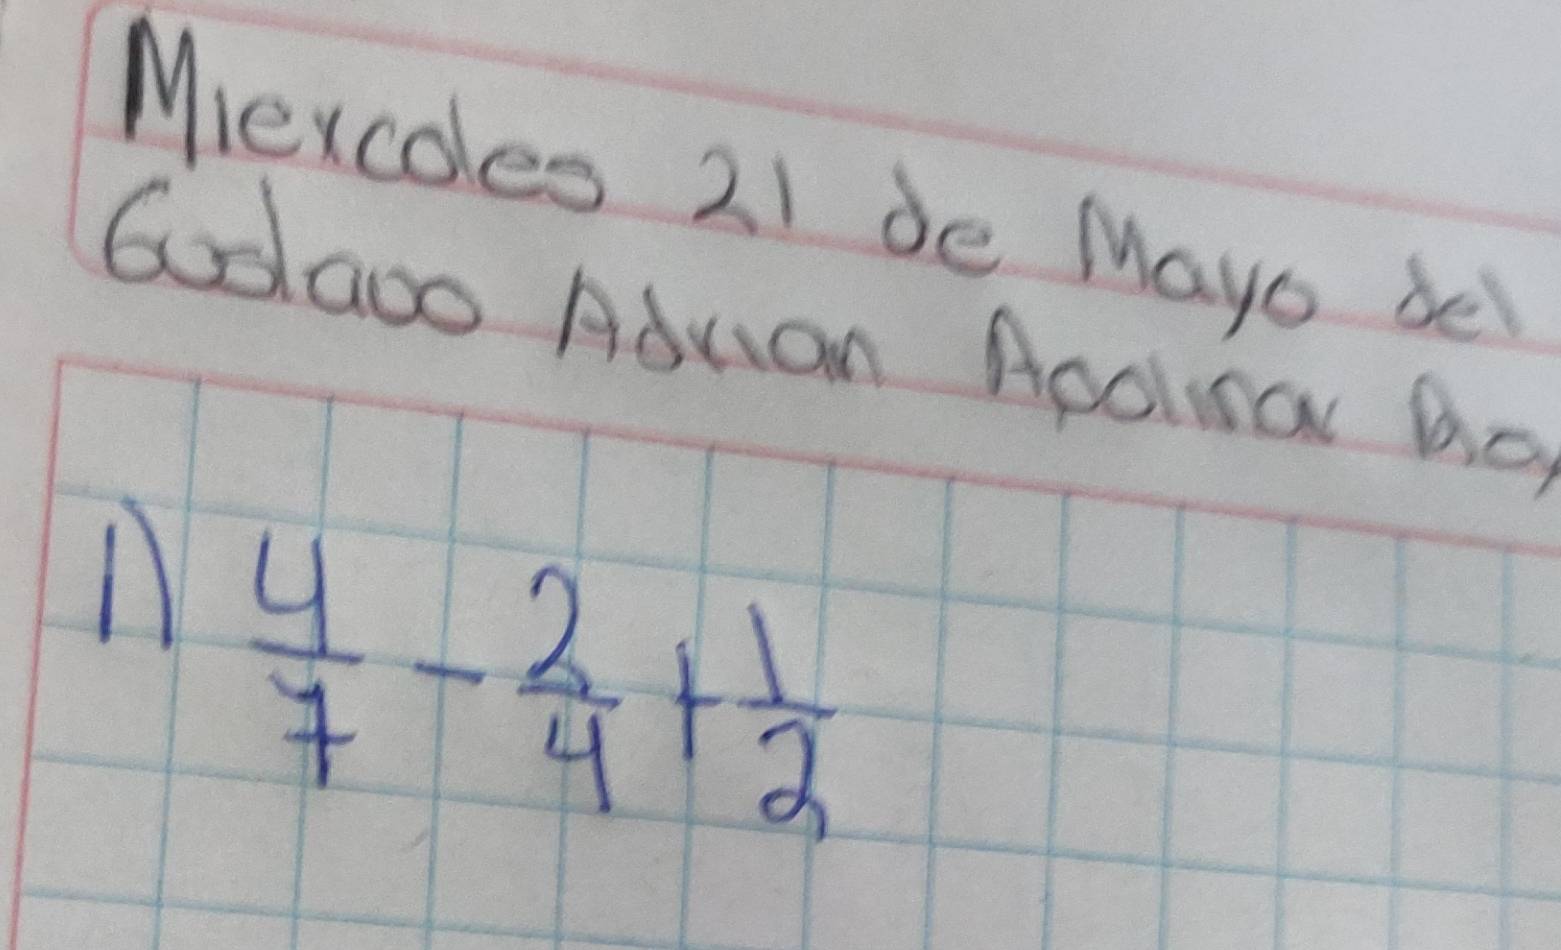 Miercoles 21 de Mayo del
Gustavo Adrian Apolinar
1) 4/7 - 2/4 + 1/2